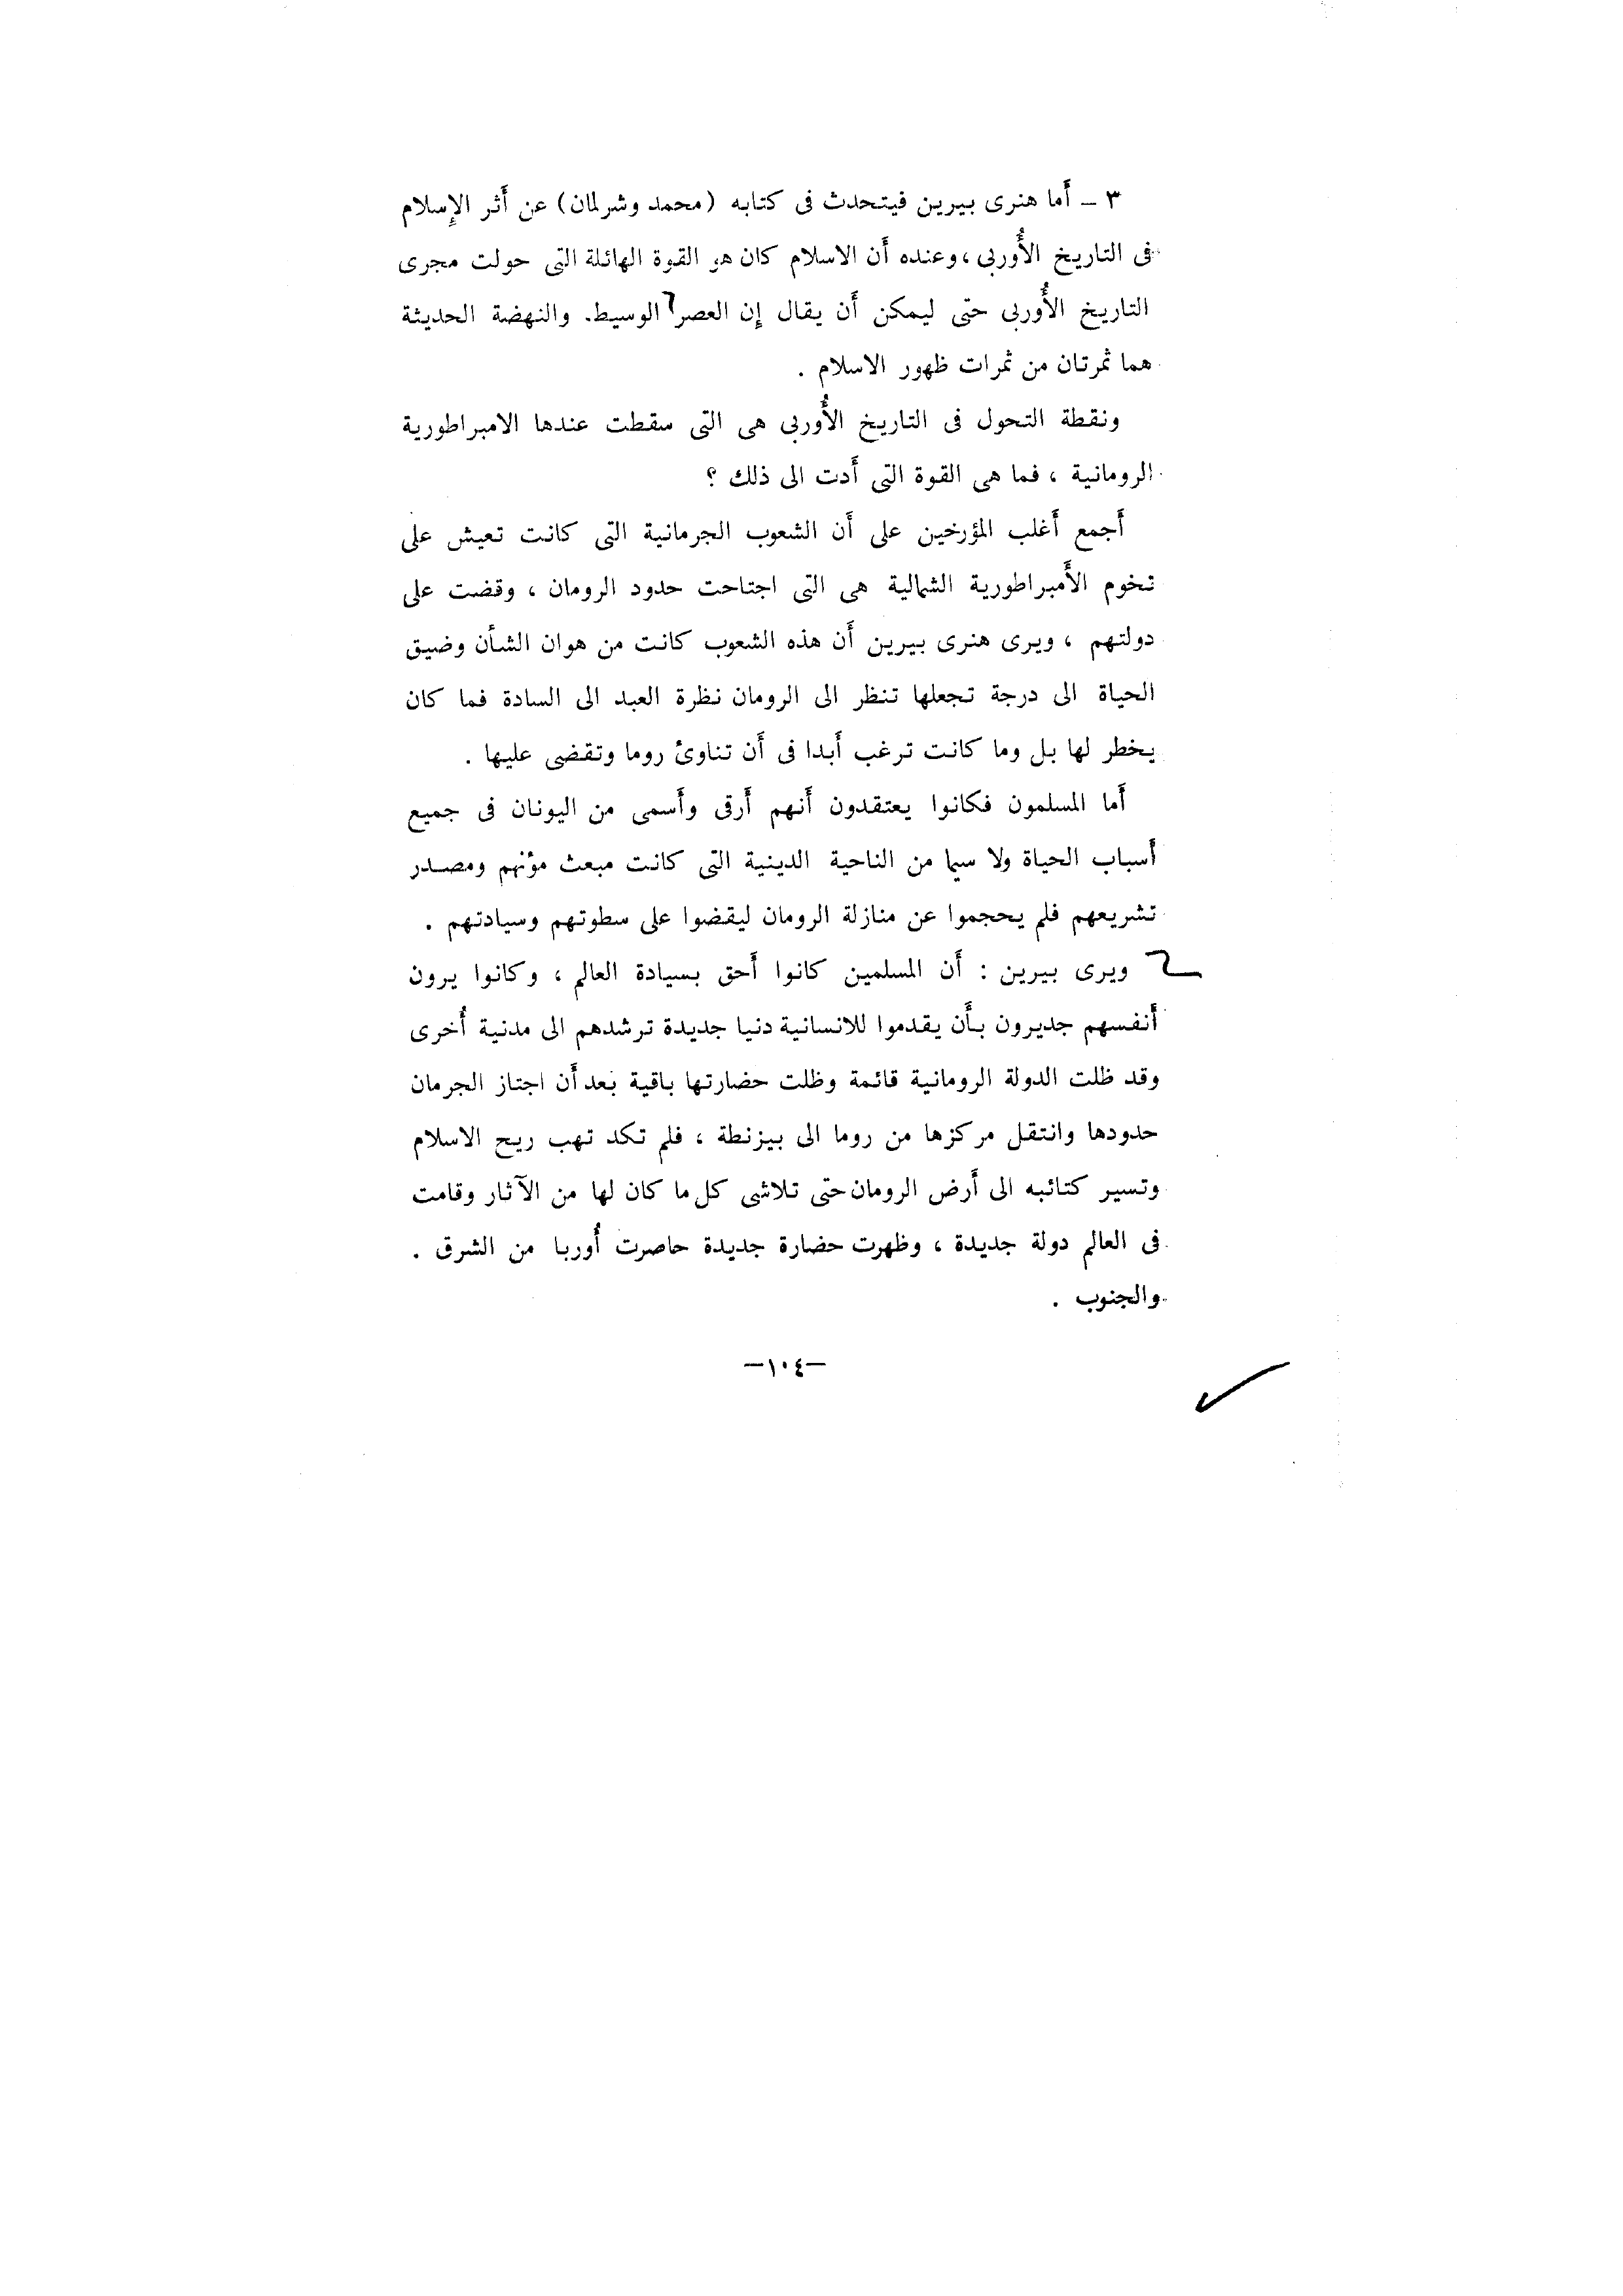 ٣ - أَما هنرى بيرين فيتحدث فى كتابه (محمد وشرلمان) عن أَثر الإِسلام
فى التاريخ الأُوربى ، وعنده أَن الاسلام كان هو القوة الهائلة التى حولت مجرى
التاريخ الأُوربى حتى ليمكن أَن يقال إِن العصر الوسيط. والنهضة الحديثة
هما ثمرتان من ثمرات ظهور الاسلام .
ونقطة التحول فى التاريخ الأُوربى هى التى سقطت عندها الامبراطورية
الرومانية ، فما هى القوة التى أَدت الى ذلك ؟
أَجمع أَغلب المؤرخين على أَن الشعوب الجرمانية التى كانت تعيش على
تخوم الأَمبراطورية الشمالية هى التى اجتاحت حدود الرومان ، وقضت على
دولتهم ، ويرى هنرى بيرين أَن هذه الشعوب كانت من هوان الشأن وضيق
الحياة الى درجة تجعلها تنظر الى الرومان نظرة العبد الى السادة فما كان
يخطر لها بل وما كانت ترغب أَبدا فى أَن تناوئ روما وتقضى عليها .
أَما المسلمون فكانوا يعتقدون أَنهم أَرقى وأَسمى من اليونان فى جميع
أَسباب الحياة ولا سيما من الناحية الدينية التى كانت مبعث مؤنهم ومصدر
تشريعهم فلم يحجموا عن منازلة الرومان ليقضوا على سطوتهم وسيادتهم .
ويرى بيرين : أَن المسلمين كانوا أَحق بسيادة العالم ، وكانوا يرون
أَنفسهم جديرون بأَن يقدموا للانسانية دنيا جديدة ترشدهم الى مدنية أُخرى
وقد ظلت الدولة الرومانية قائمة وظلت حضارتها باقية بعد أَن اجتاز الجرمان
حدودها وانتقل مركزها من روما الى بيزنطة ، فلم تكد تهب ريح الاسلام
وتسير كتائبه الى أَرض الرومان حتى تلاشى كل ما كان لها من الآثار وقامت
فى العالم دولة جديدة ، وظهرت حضارة جديدة حاصرت أُوربا من الشرق .
والجنوب .
-١٠٤-